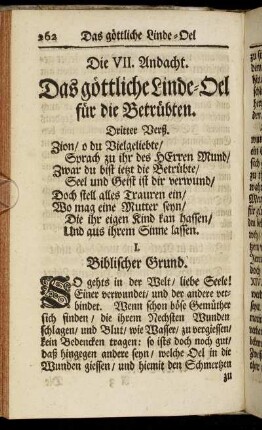 262 Das göttliche Linde-Oel
Die VII. Andacht.
Das göttliche Linde-Oel
für die Betrübten.
Dritter Verß.
Zion/ o du Vielgeliebte/
Sprach zu ihr des HErren Mund/
Zwar du bist ietzt die Betrübte/
Seel und Geist ist dir verwund/
Doch stell alles Trauren ein/
Wo mag eine Mutter seyn/
Die ihr eigen Kind kan hassen/
Und aus ihrem Sinne lassen.
I.
Biblischer Grund.
SO gehts in der Welt/ liebe Seele!
Einer verwundet/ und der andere ver-
bindet. Wenn schon böse Gemüther
sich finden/ die ihrem Nechsten Wunden
schlagen/ und Blut/ wie Wasser/ zu vergiessen/
kein Bedencken tragen: so ists doch noch gut/
daß hingegen andere seyn/ welche Oel in die
Wunden giessen/ und hiemit den Schmertzen
zu